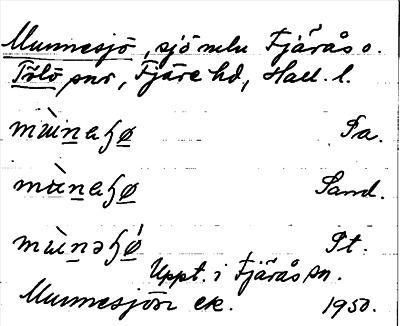 Munnesjö, sjö mln Fjärås o.
Tölö snr, Fjäre hd, Hall. l.
mùnaɧø Pa.
mùnaɧø Sand.
mùnəɧǿ Pt.
Uppt. i Fjärås sn.
Munnesjön ek. 1950.